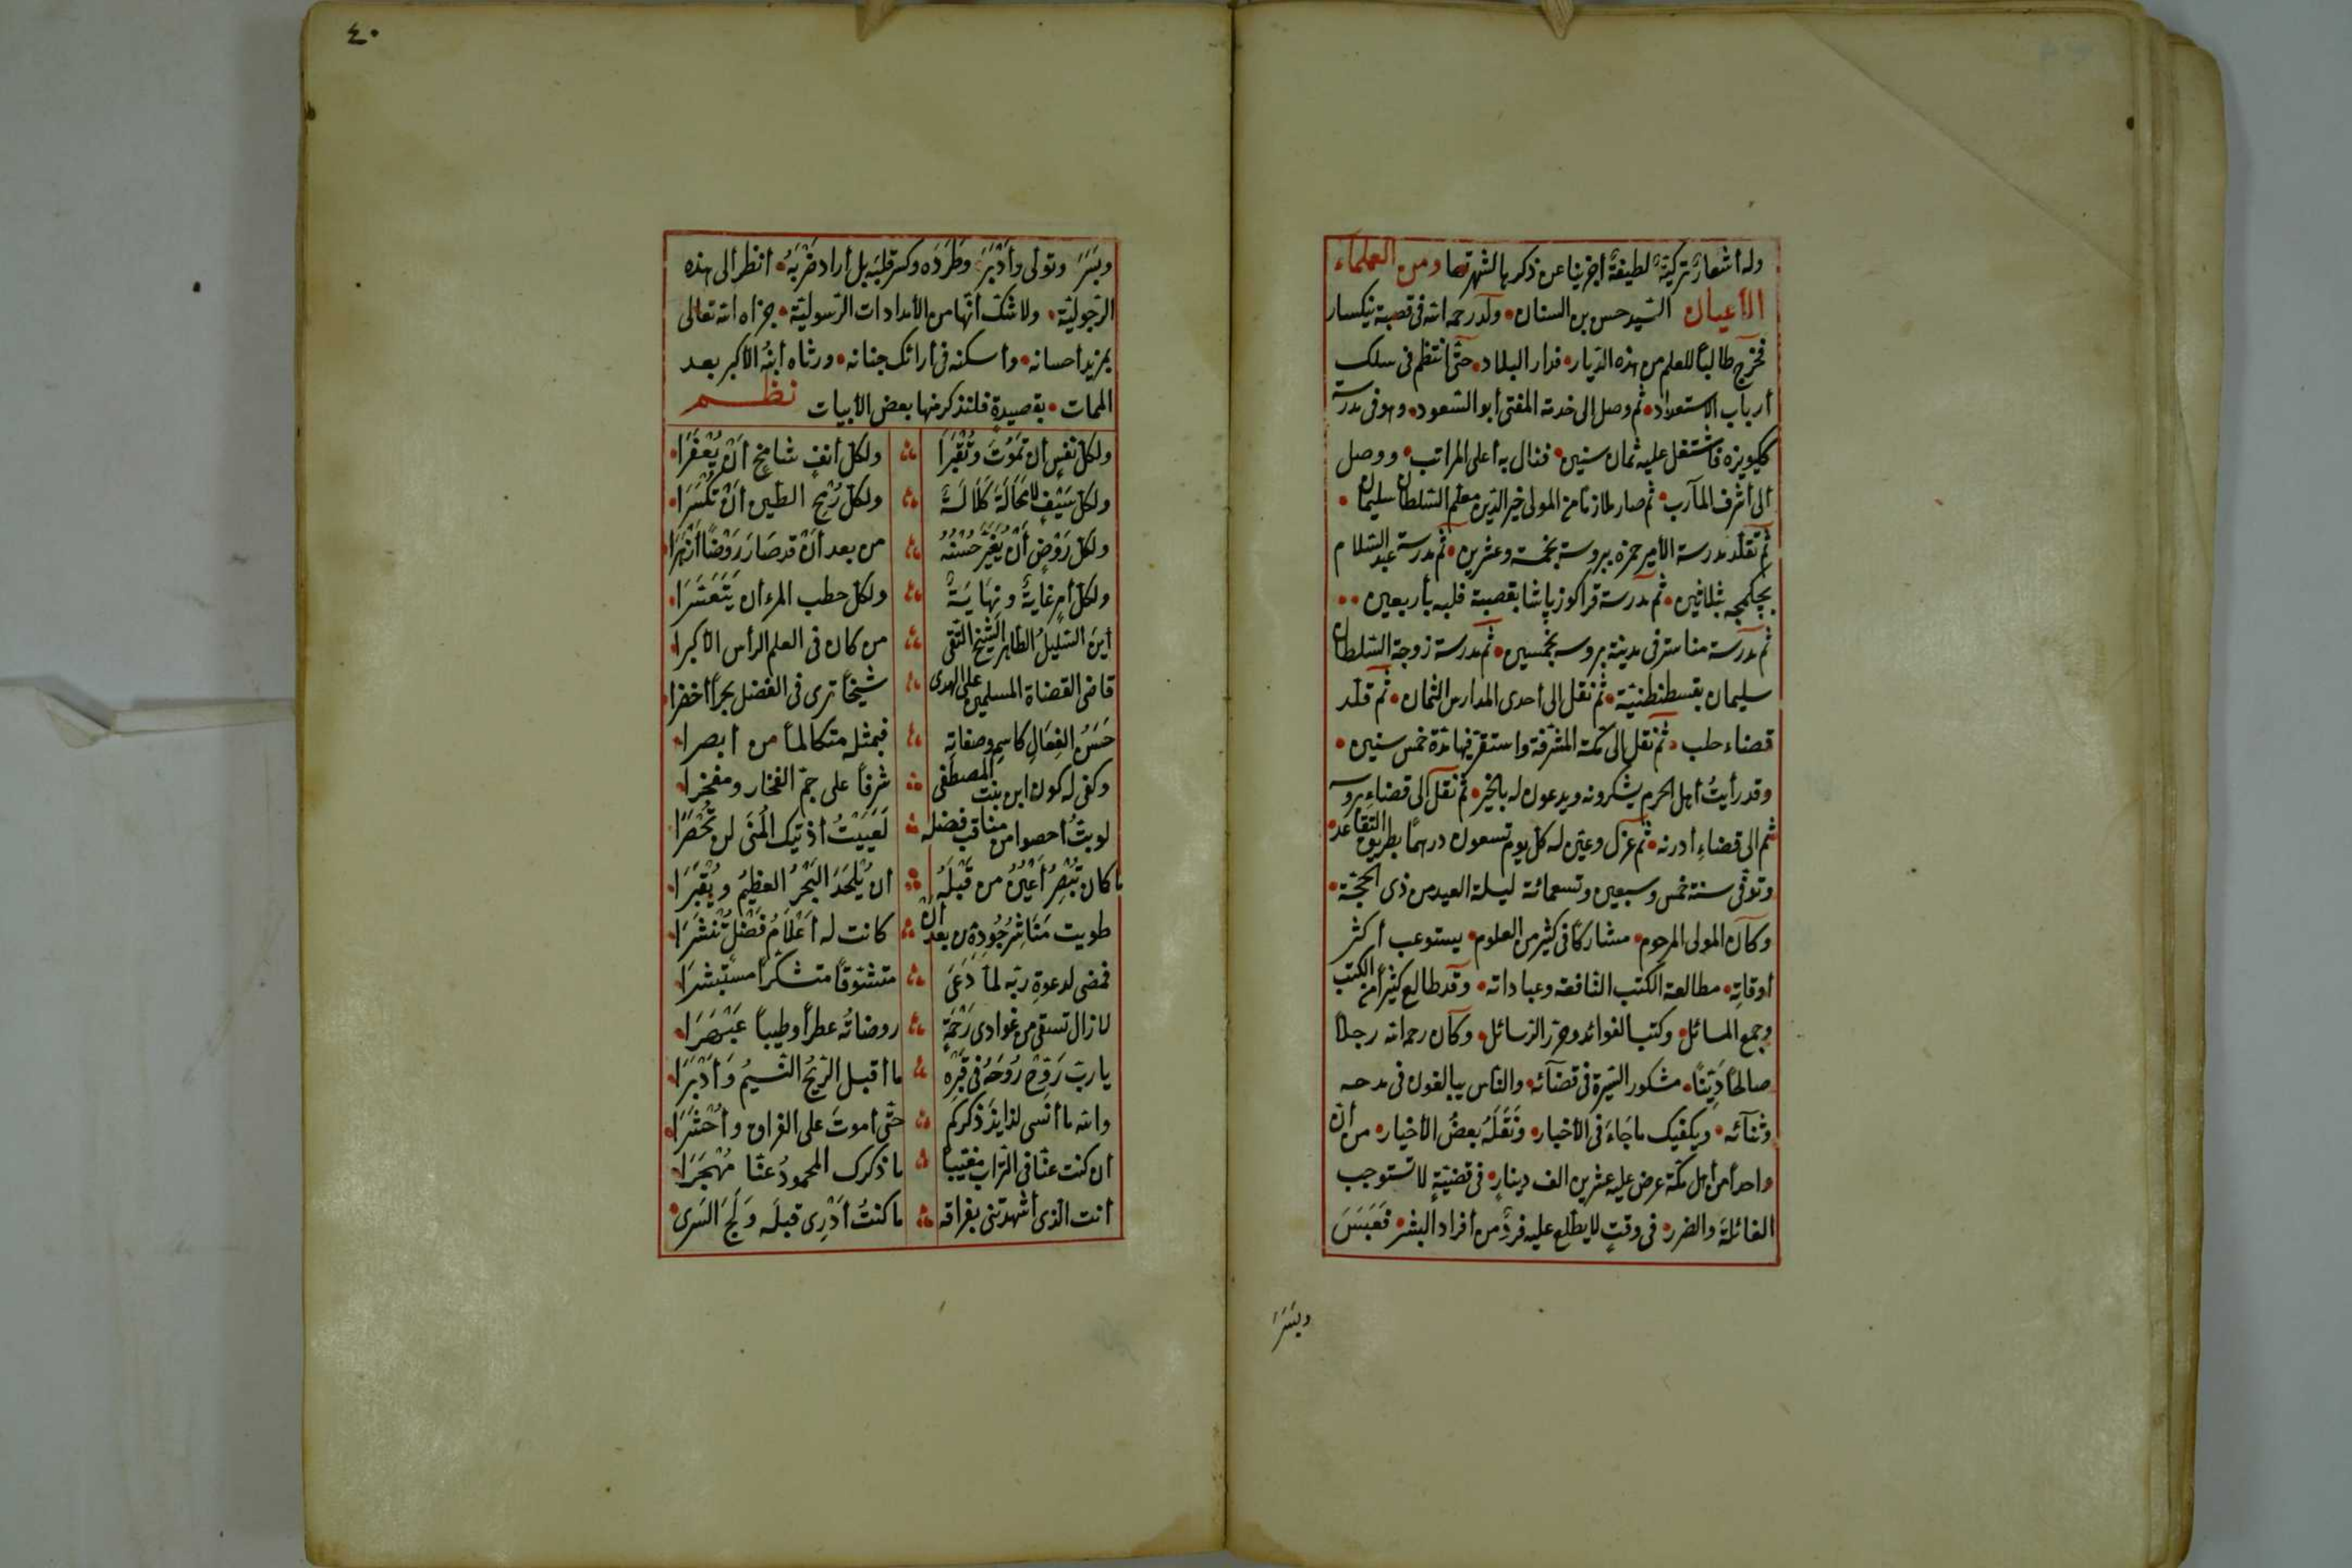 وله أشعارٌ تركيّةٌ لطيفةٌ أجزينا عن ذكرها لشهرتها ومن العلماء
الأعيان السّيد حسن بن السنان • ولد رحمه الله فى قصبة نيكسار
فخرج طالبًا للعلم من هذه الدّيار • فدار البلاد • حتّى انتظم فى سلك
أرباب الاستعداد • ثم وصل إلى خدمة المفتى أبو السّعود • وهو فى مدرسة
ككيويزه فاشتغل عليه ثمان سنين • فنال به أعلى المراتب • ووصل
الى أشرف المآرب • ثم صار ملازمًا من المولى خير الدّين معلّم السّلطان سليمان •
ثم تقلّد مدرسة الأمير حمزه ببروسة بخمسة وعشرين • ثم مدرسة عبد السّلام
بچكمجه بثلاثين • ثم مدرسة قراكوز پاشا بقصبة فلبه بأربعين ••
ثم مدرسة مناستر فى مدينة بروسه بخمسين • ثم مدرسة زوجة السّلطان
سليمان بقسطنطنيّة • ثم نقل الى أحدى المدارس الثمان • ثم قلّد
قضاء حلب • ثم نقل الى مكّة المشرّفة واستقرّ فيها مدّة خمس سنين •
وقد رأيتُ أهل الحرم يشكرونه ويدعون له بالخير • ثم نقل الى قضاء بروسه
ثم الى قضاءِ أدرنه • ثم عزل وعيّن له كلّ يوم تسعون درهمًا بطريق التّقاعد •
وتوفّى سنة خمس وسبعين وتسعمائة ليلة العيد من ذى الحجّة •
وكان المولى المرحوم • مشاركًا فى كثير من العلوم • يستوعب أكثر
أوقاتِه • مطالعة الكتب النّافعة وعباداته • وقد طالع كثيرًا من الكتب
وجمع المسائل • وكتب الفوائد وحرّر الرّسائل • وكان رحمه الله رجلًا
صالحًا دَيِّنًا • مشكور السّيرة فى قضآئه • والنّاس يبالغون فى مدحه
وثنآئه • ويكفيك ما جَاءَ فى الأخبار • ونَقَلَهُ بعضُ الأخيار • من أنّ
واحدًا من أهل مكّة عرض عليه عشرين الف دينارٍ • فى قضيّةٍ لا تستوجب
الغائلة والضرر • فى وقتٍ لا يطّلع عليه فردٌ من أفراد البشر • فَعَبَسَ
وبسرَ
٤٠
وبَسَرَ وتولى وأدْبَرَ • وطَرَدَه وكسر قلبَه بل أراد ضَرْبَهُ • انظر الى هذه
الرّجوليّة • ولا شكّ انّها من الأمدادات الرّسوليّة • جزاه الله تعالى
بمزيد أحسانه • وأسكنه فى أرائك جنانه • ورثاه ابنُه الأكبر بعد
الممات • بقصيدةٍ فلنذكر منها بعض الأبيات نظم
ولكلّ نفسٍ ان تَموُتَ وتُقْبَرَا ولكلّ أنفٍ شامخٍ أن يُعْفَرَا •
ولكلّ سَيْفٍ لا مَحَالَةَ كَلَالَةً ولكلّ رُمْحِ الطّين أنْ تُكْسَرَا •
ولكلّ رَوْضٍ أنْ يُغيَّرَ حُسْنُهُ من بعد أنْ قد صَارَ رَوْضًا أزْهَرَا •
ولكلّ أمرٍ غَايَةٌ ونِهَايَةٌ ولكلّ خطب المرء أن يَتَعَسَّرَا •
أينَ السّليلُ الطّاهر الشّيخ التّقى من كان فى العلم الرأس الأكبرا •
قاضى القضاة المسلمين على الهدى شيخًا ترى فى الفضل بحرًا أخضرا •
حَسَنُ الفِعَالِ كاسمِه وصفاتِه فبمثله متكالمًا من أبصرا •
وكفى له كون ابن بنت المصطفى شرفًا على جمّ الفخار ومفخرا •
لو بتُّ أحصوا من مناقب فضله لَعَيِيتُ أذ تيك المُنَى لن تُحْصَرَا •
ما كان تُبْصِرُ أعْيُنٌ من قَبْلَهُ أن يُلْحَدَ البَحْرُ العظيمُ ويُقْبَرَا •
طويت مَنَاشِرُ جُودِهِ من بعد أن كانت له أعْلَامُ فَضْلٍ تُنْشَرَا •
فمضى لدعوةِ ربّه لمّا دَعَى متشوّقًا متشكّرًا مستبشرَا •
لا زال تسقى من غوادى رَحْمَةٍ روضاتُه عطرًا وطيبًا عَبْهَرَا •
يا ربّ رَوِّحْ رُوحَهُ فى قَبْرِهِ ما أقبل الرّيحُ النّسيمُ وأدْبَرَا •
والله ما أنسى لذايذَ ذكركم حتّى أموتَ على الفراق وأحْشَرَا •
ان كنت عنّا فى التّراب مغيّبًا ما ذكرك المحمودُ عنّا مُهْجَرَا •
انت الّذى أشهدتنى بفراقه ما كنتُ أدْرِى قبلَه وَلَجَ السّرى •